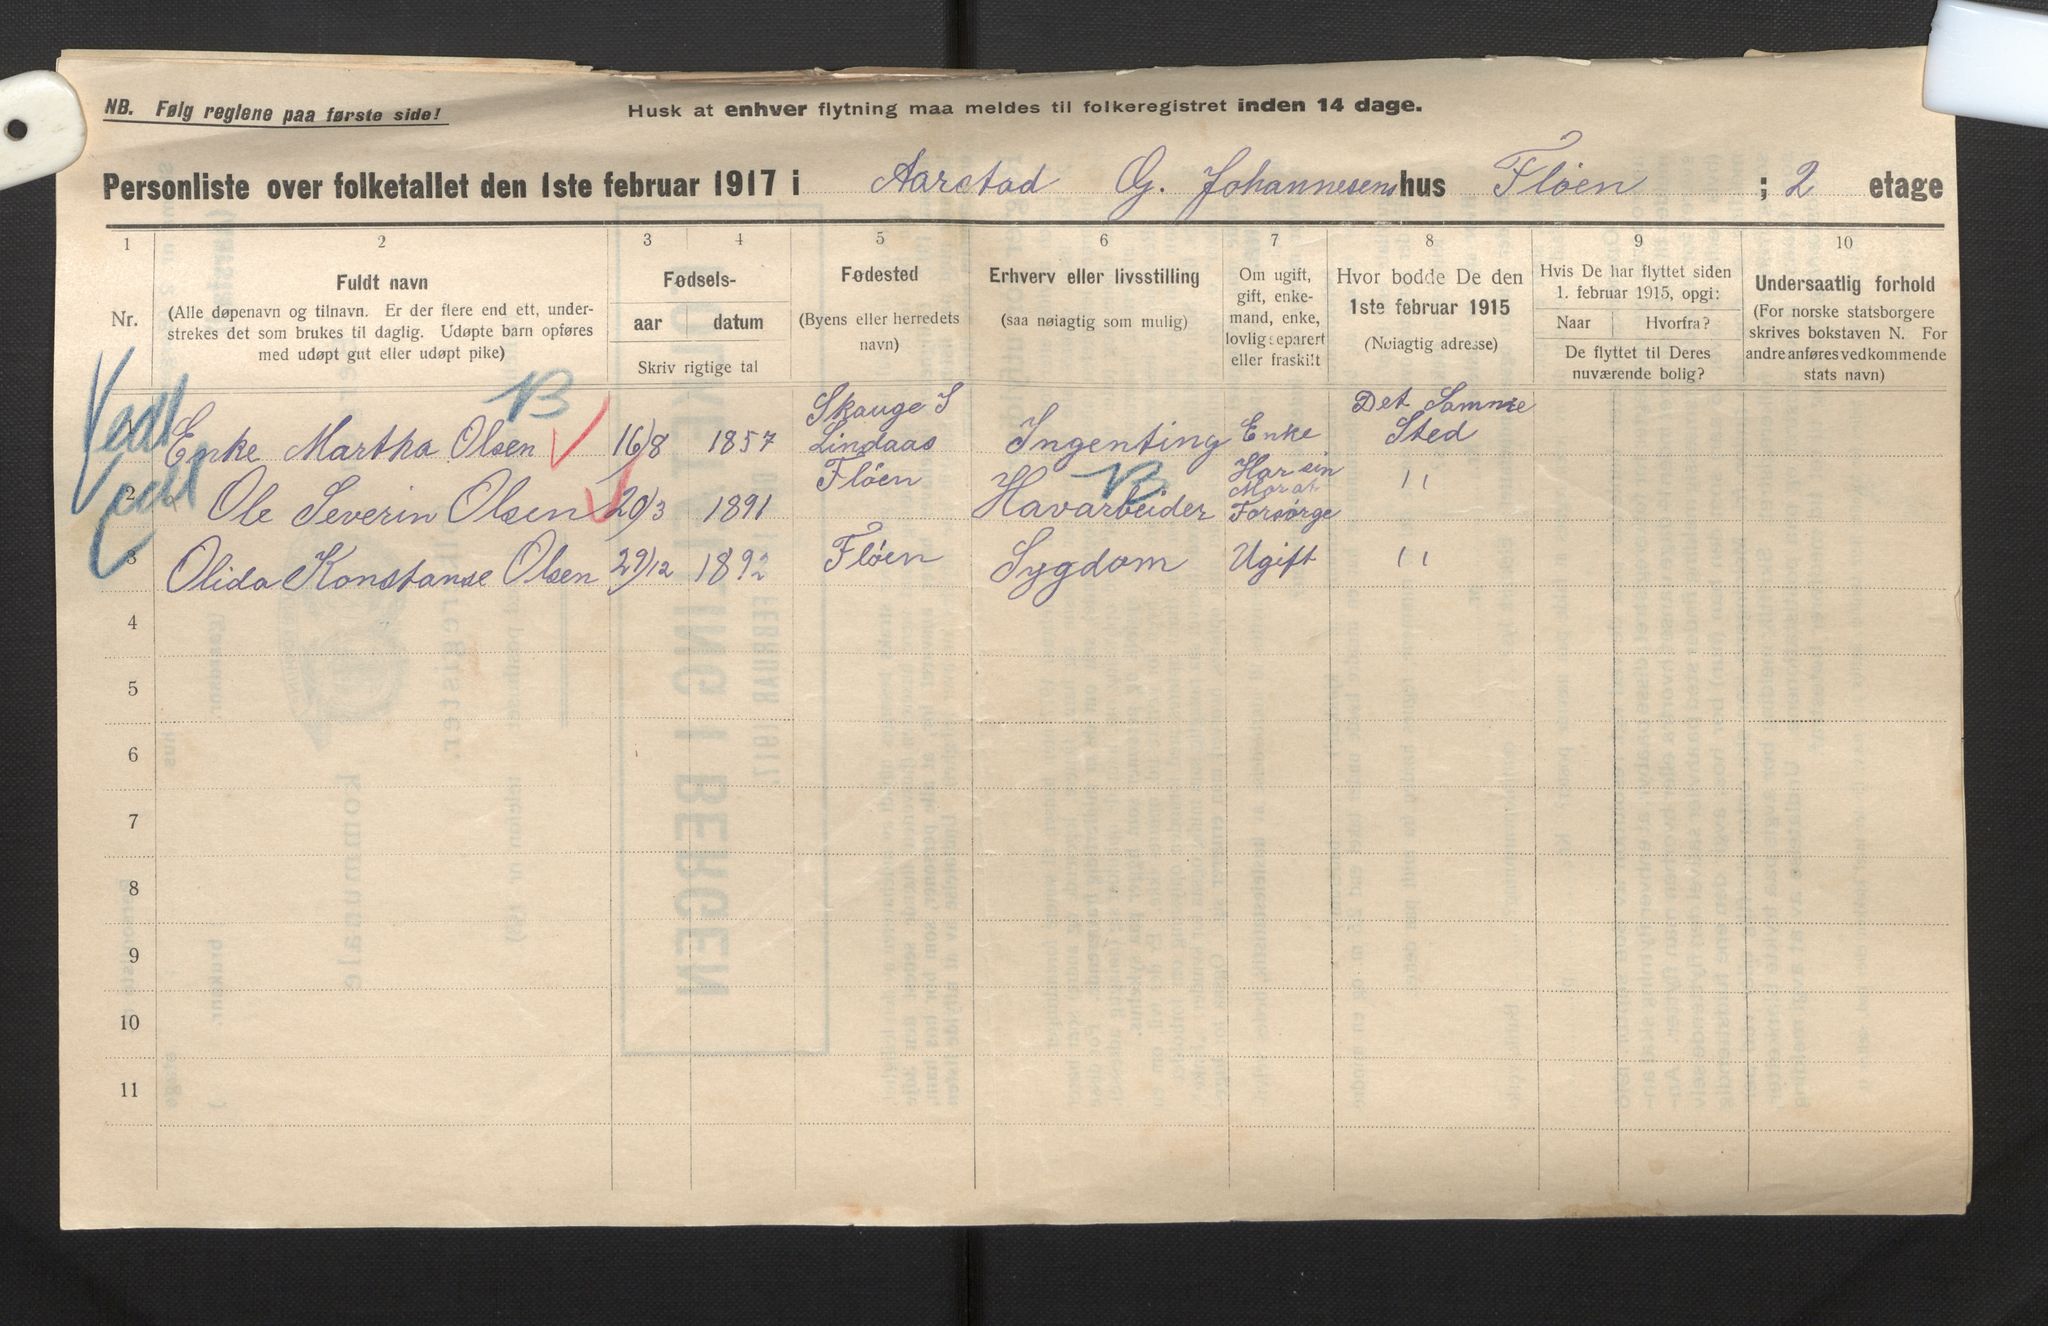 NB. Følg reglene paa første side!
Husk at enhver flytning maa meldes til folkeregistret inden 14 dage.
Personliste over folketallet den 1ste februar 1917 i Aarstad G. Johannesens hus Fløen ; 2 etage
1 2 3 4 5 6 7 8 9 10
Nr.
Fuldt navn
(Alle døpenavn og tilnavn. Er der flere end ett, under-
strekes det som brukes til daglig. Udøpte barn opføres
med udøpt gut eller udøpt pike)
Fødsels-
aar datum
Skriv rigtige tal
Fødested
(Byens eller herredets
navn)
Erhverv eller livsstilling
(saa nøiagtig som mulig)
Om ugift,
gift, enke-
mand, enke,
lovlig separert
eller fraskilt
Hvor bodde De den
1ste februar 1915
(Nøiagtig adresse)
Hvis De har flyttet siden
1. februar 1915, opgi:
Naar Hvorfra?
De flyttet til Deres
nuværende bolig?
Undersaatlig forhold
(For norske statsborgere
skrives bokstaven N. For
andre anføres vedkommende
stats navn)
Vedt
B
Skauge I
Det Samme
1 Enke Martha Olsen 16/8 1857 Lindaas Ingenting Enke Sted
Vedt
B
Har sin
Mor at
2 Ole Severin Olsen 20/3 1891 Fløen Havarbeider Forsørge 11
3 Olida Konstanse Olsen 29/12 1892 Fløen Sygdom Ugift 11
4
5
6
7
8
9
10
11